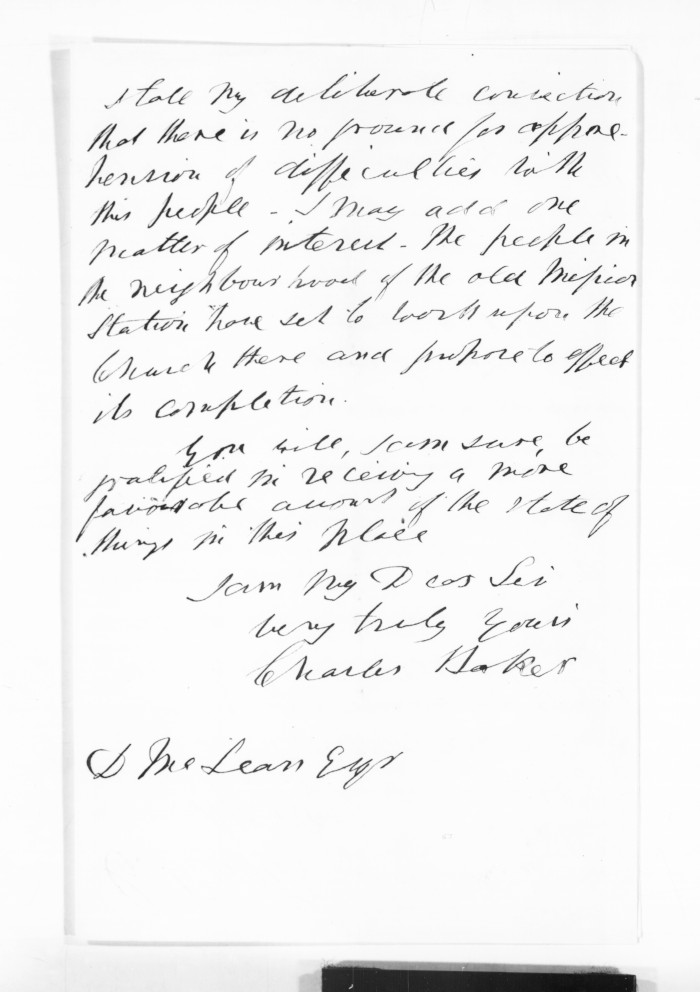 state my deliberate conviction
that there is no ground for appre-
hension of difficulties with
this people - I may add one
matter of interest - The people in
the neighbourhood of the old Mission
Station have set to work upon the
Church there and propose to effect
its completion.
You will, I am sure, be
gratified in receiving a more
favourable account of the state of
things in this place
I am My Dear Sir
very truly yours
Charles Baker
D McLean Esqr